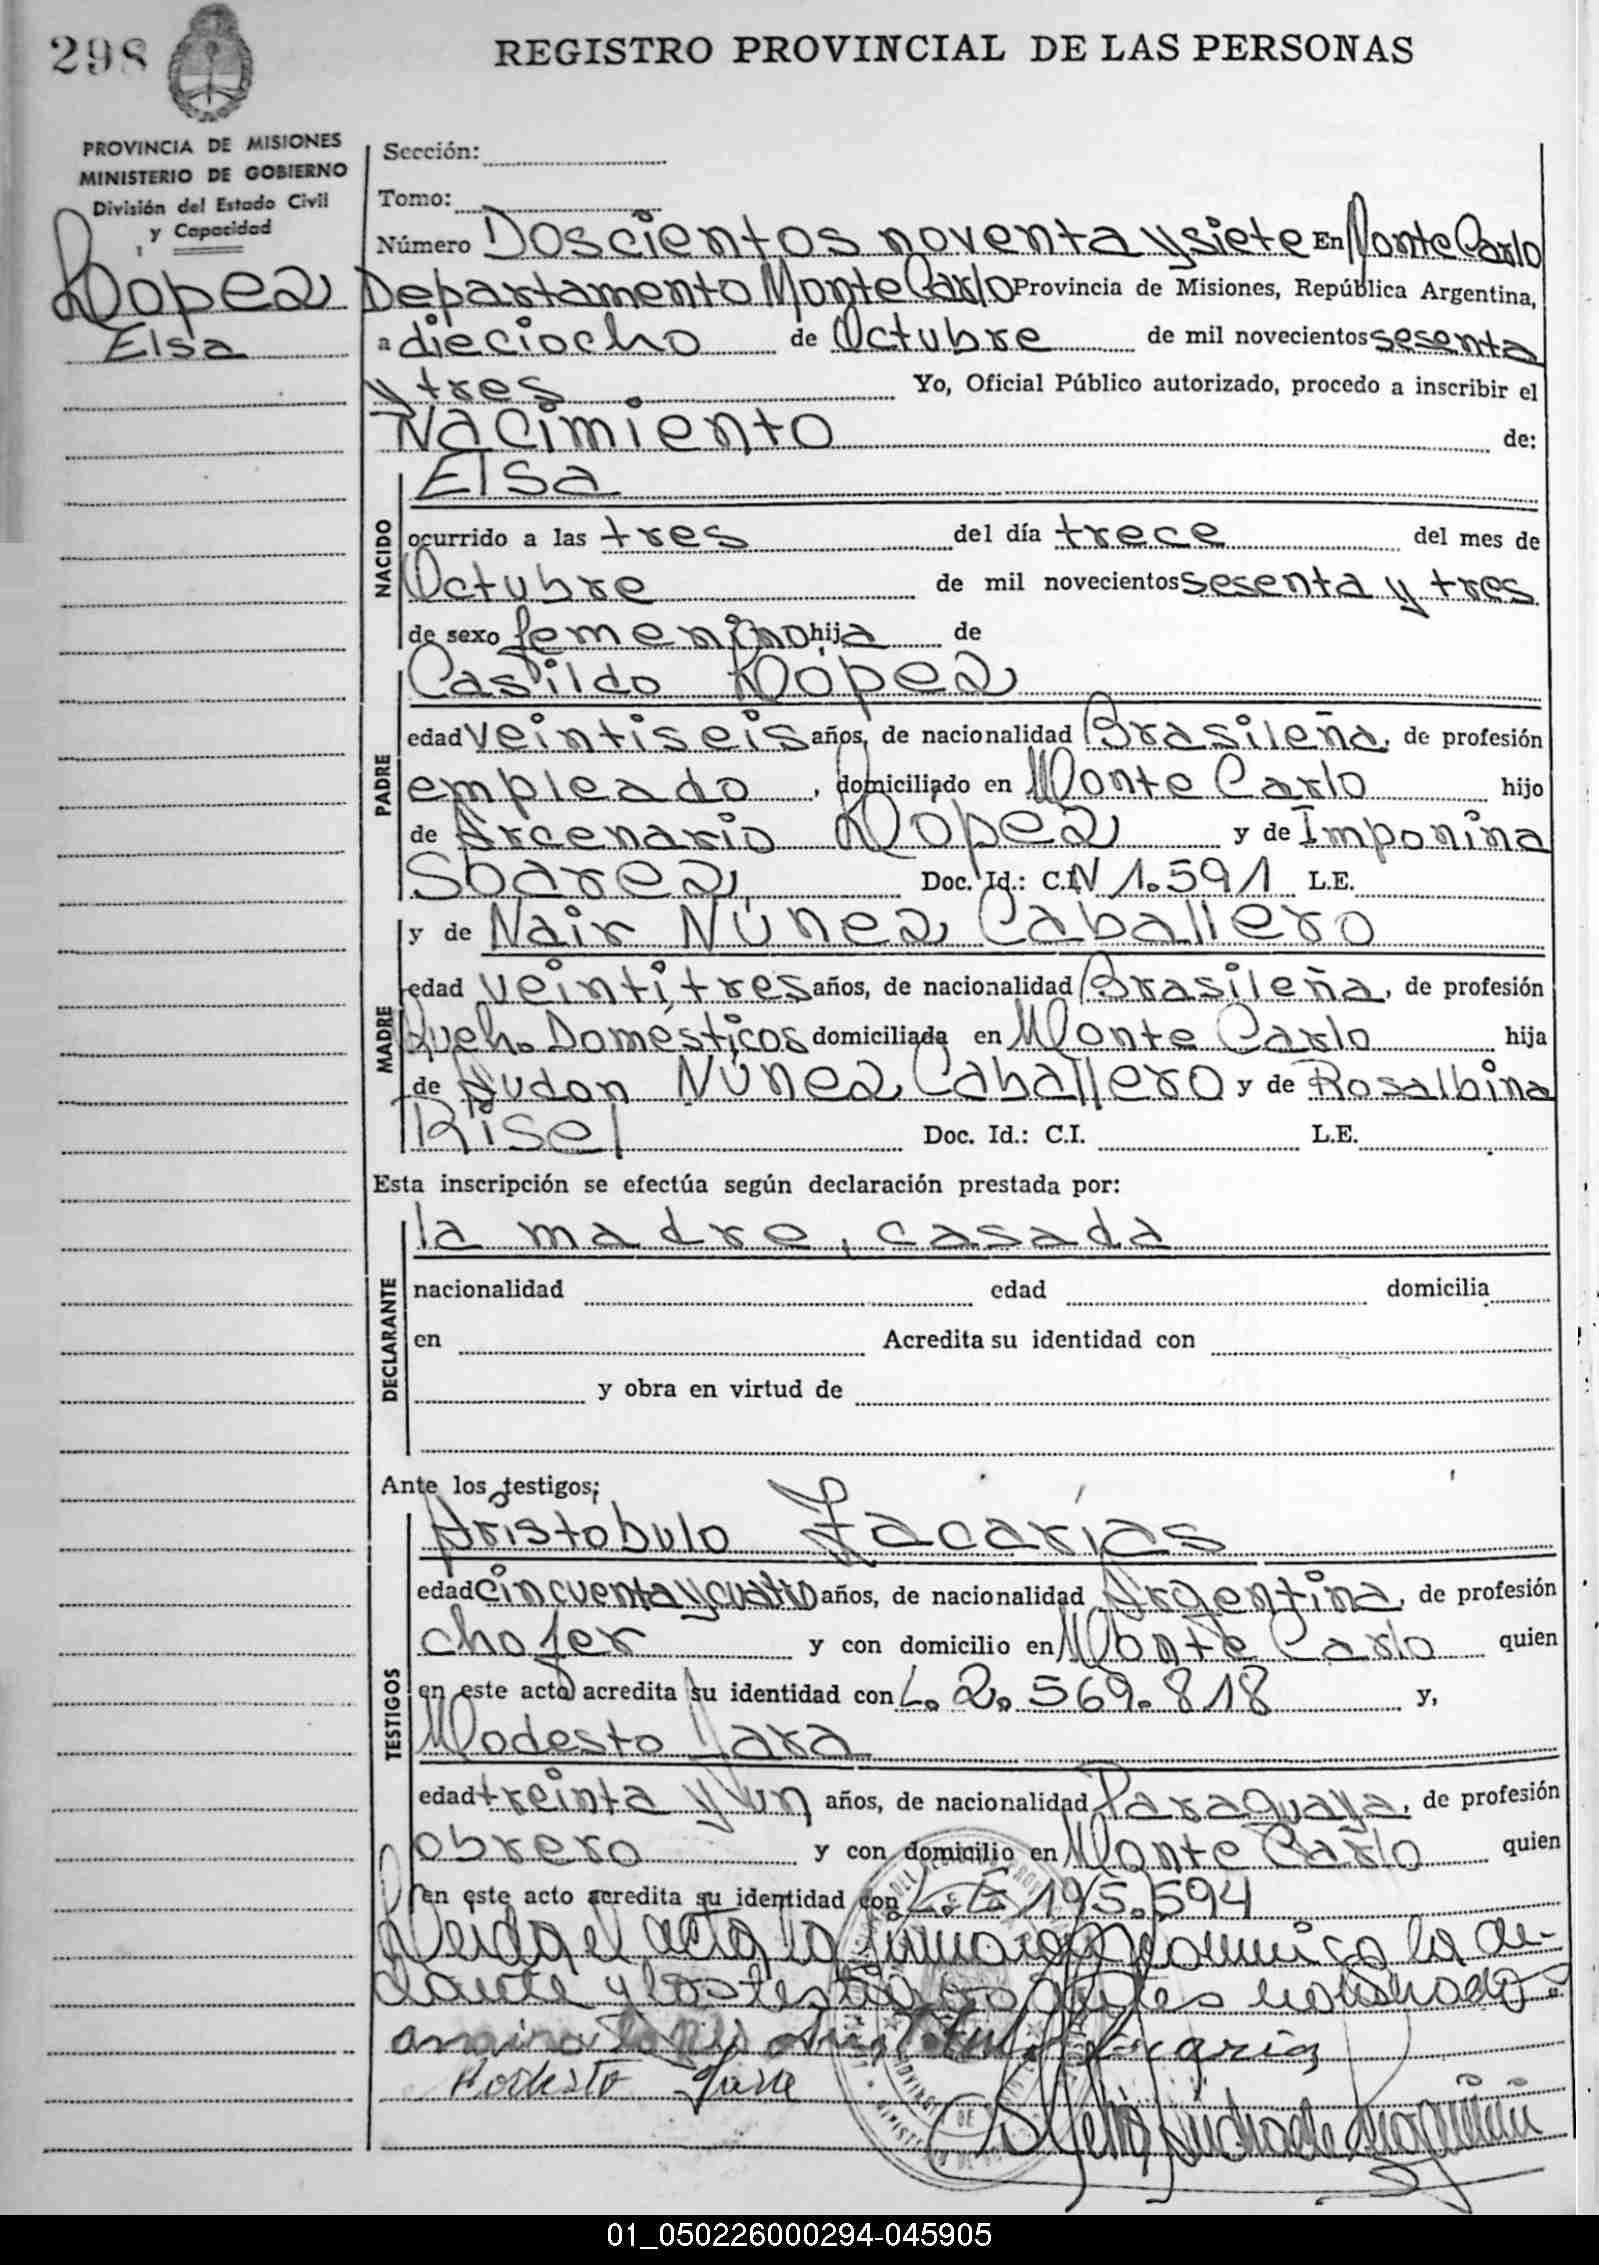 298
REGISTRO PROVINCIAL DE LAS PERSONAS
PROVINCIA DE MISIONES
MINISTERIO DE GOBIERNO
División del Estado Civil
y Capacidad
Lopez
Elsa
Sección:
Tomo:
Número Doscientos noventa y siete En Monte Carlo
Departamento Monte Carlo Provincia de Misiones, República Argentina,
a dieciocho de Octubre de mil novecientos sesenta
y tres Yo, Oficial Público autorizado, procedo a inscribir el
Nacimiento de:
NACIDO
Elsa
ocurrido a las tres del día trece del mes de
Octubre de mil novecientos sesenta y tres
de sexo femenino hija de
PADRE
Casildo Lopez
edad veintiseis años, de nacionalidad Brasileña, de profesión
empleado, domiciliado en Monte Carlo hijo
de Arcenario Lopez y de Imponina
Soarez, Doc. Id.: C.I. N 1.591 L.E.
MADRE
y de Nair Núnez Caballero
edad veintitres años, de nacionalidad Brasileña, de profesión
Queh. Domésticos domiciliada en Monte Carlo hija
de Audon Núnez Caballero y de Rosalbina
Risel Doc. Id.: C.I. L.E.
Esta inscripción se efectúa según declaración prestada por:
DECLARANTE
la madre, casada
nacionalidad edad domicilia
en Acredita su identidad con
y obra en virtud de
Ante los testigos;
TESTIGOS
Aristobulo Zacarías
edad cincuenta y cuatro años, de nacionalidad Argentina, de profesión
chofer y con domicilio en Monte Carlo quien
en este acto acredita su identidad con L. 2.569.818 y,
Modesto Jara
edad treinta y un años, de nacionalidad Paraguaya, de profesión
obrero y con domicilio en Monte Carlo quien
en este acto acredita su identidad con 195.594
Leida el acta la conmigo la de-
clarante y los testigos antes nombrado.
Zacarias
Modesto Jara
01_050226000294-045905